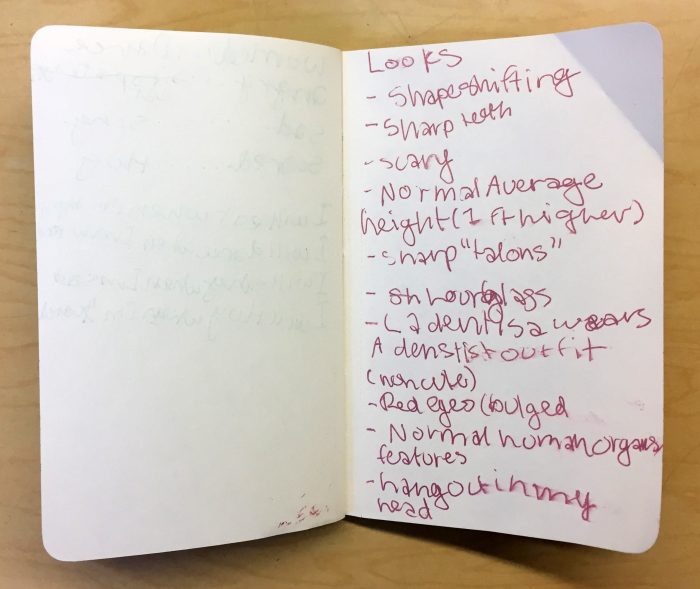 Looks
- Shapeshifting
- Sharp teeth
- scary
- Normal Average
height (1 ft higher)
- sharp "talons"
- hourglass
- La dentisa wears
A denstist outfit
- Red eyes (bulged
- Normal human organs
features
- hang out in my
head